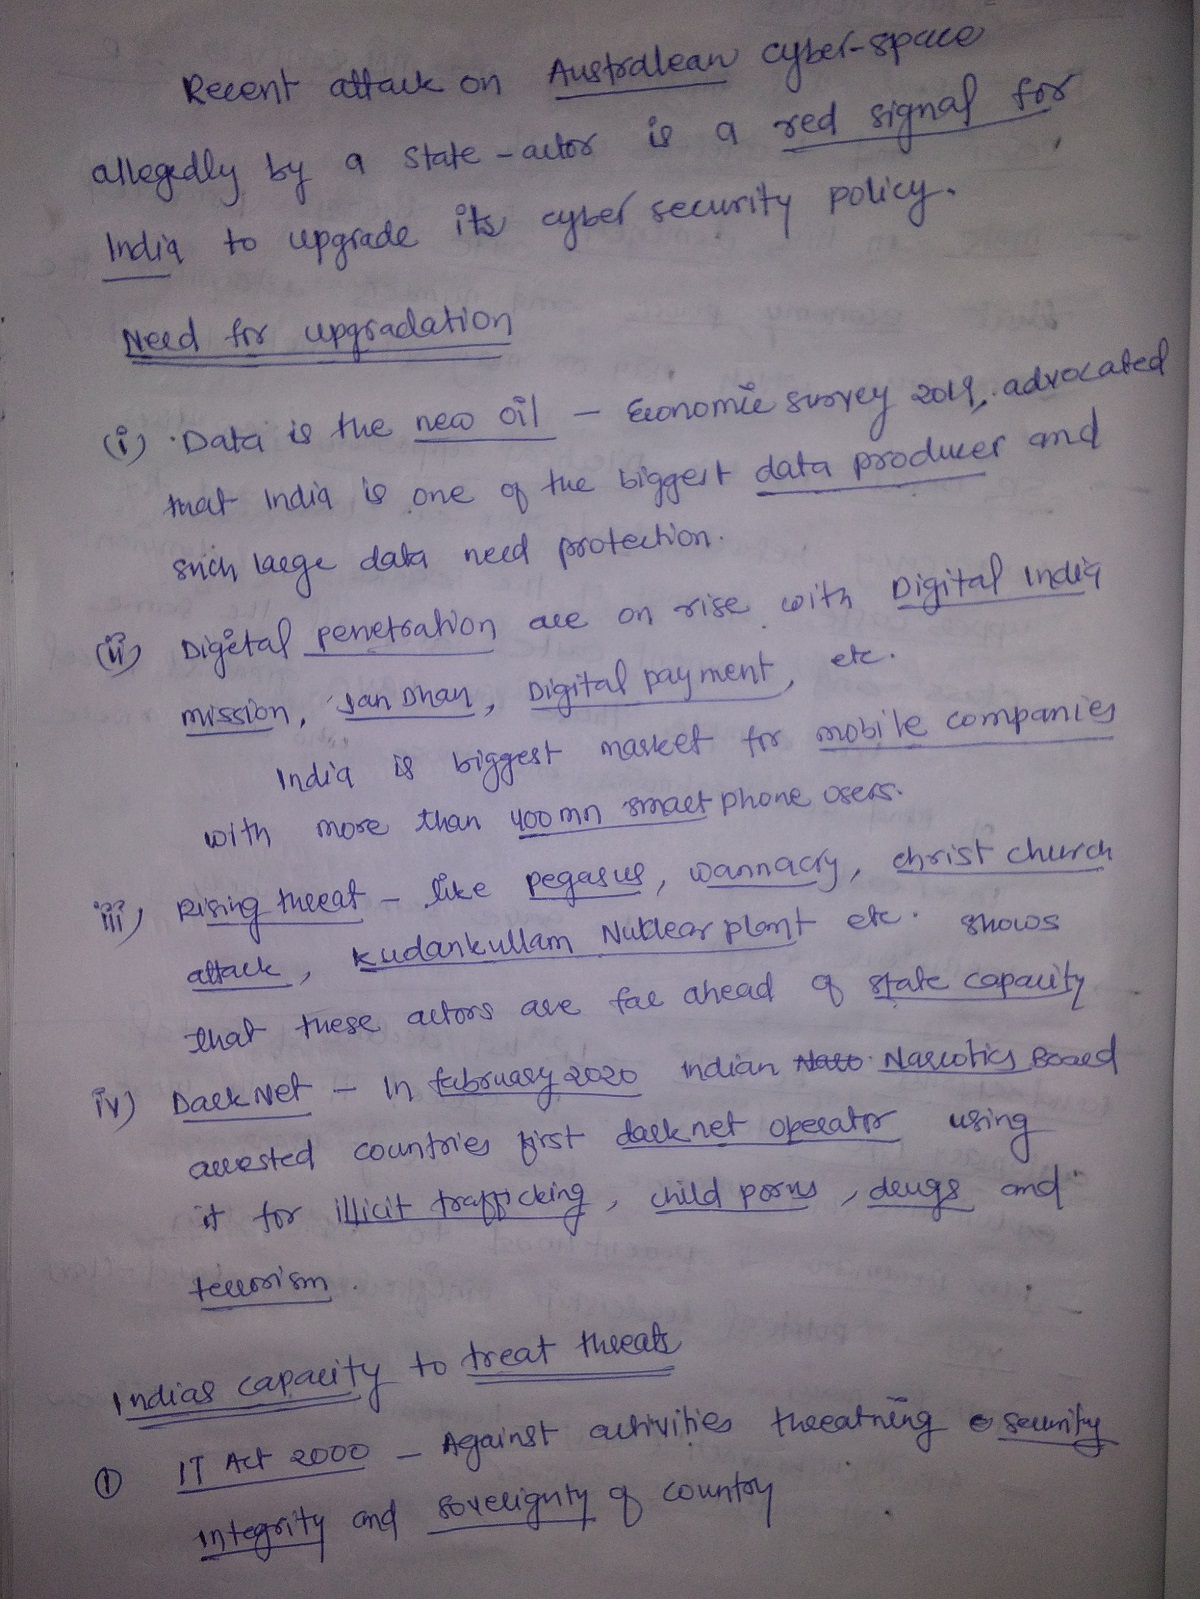 Recent attack on Australean cyber-space
allegedly by a state-actor is a red signal for
India to upgrade its cyber security policy.
Need for upgradation
(i) Data is the new oil - Economic survey 2019, advocated
that India is one of the biggest data producer and
such large data need protection.
(ii) Digital penetration are on rise with Digital India
mission, Jan Dhan, Digital payment, etc.
India is biggest market for mobile companies
with more than 400 mn smart phone users.
iii) Rising threat - like pegasus, wannacry, christ church
attack, kudankullam Nuclear plant etc. shows
that these actors are far ahead of state capacity
iv) Dark Net - In february 2020 Indian Narcotics Board
arrested countries first darknet operator using
it for illicit trafficking, child porns, drugs and
terrorism.
Indias capacity to treat threats
① IT Act 2000 - Against activities threatning security
integrity and sovereignty of country